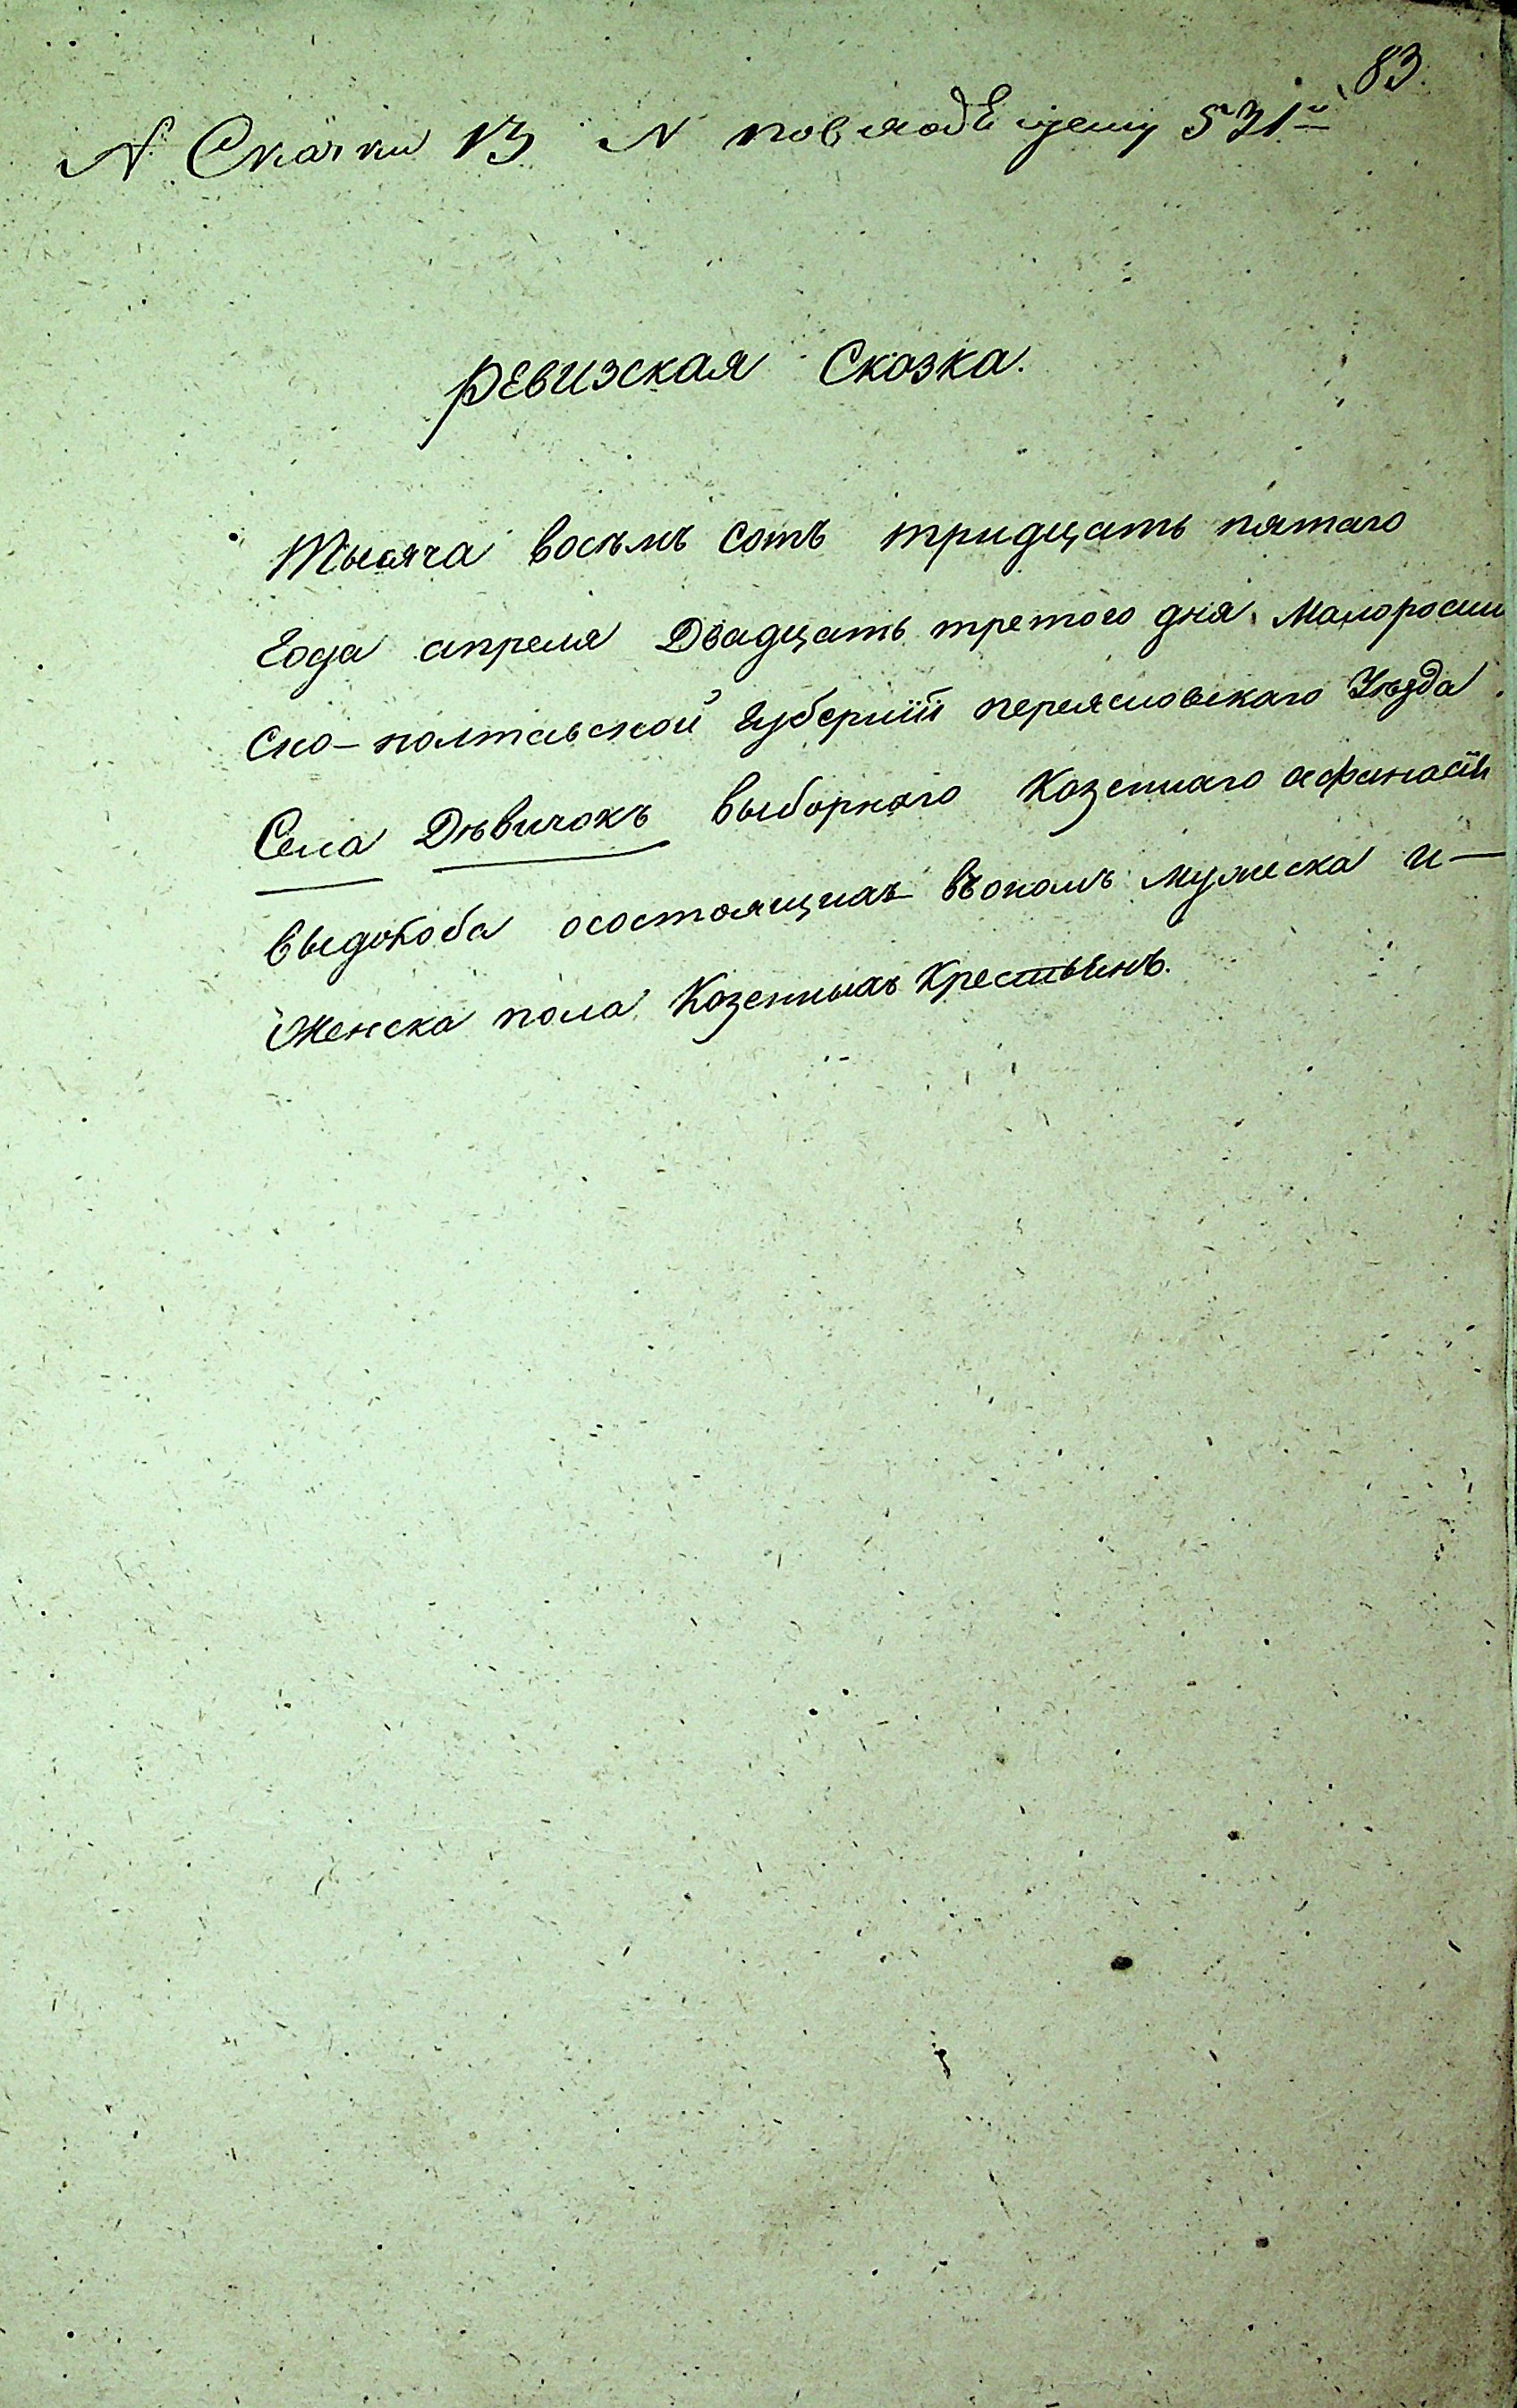 83.
№ Скаски 13 № повяодѣщему 531й
Ревизская Сказка.
Тысяча восѣмъ сотъ тридцать пятаго
Года апреля Двадцать третого дня Малоросий
ско-полтавской Губернїй переясловскаго Уѣзда
Села Дѣвичокъ выборнаго Козеннаго афанасїя
осостоящихъ вѣономъ мужеска и—
Женска пола Козенныхъ Крестьянъ.